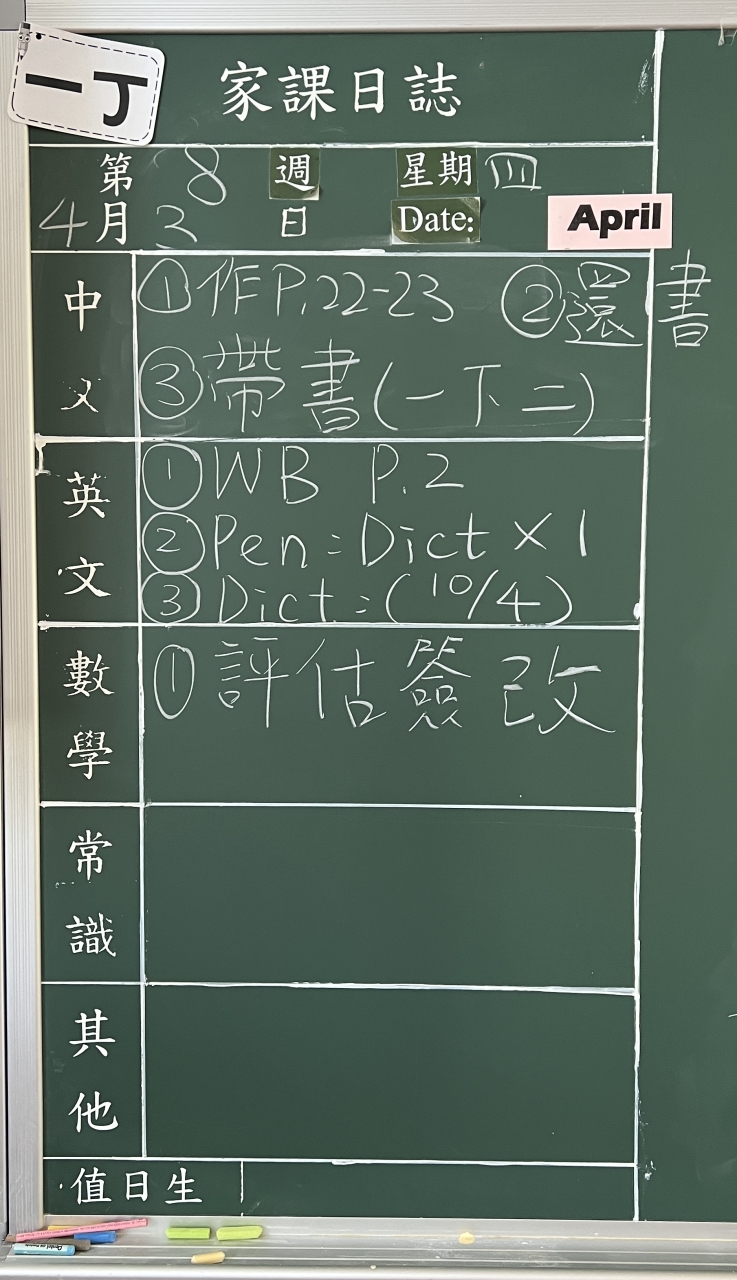 一丁
家課日誌
第 8 週 星期 四
4 月 3 日 Date: April
中文
① 作 P.22-23 ② 還書
③ 帶書(一下二)
英文
① WB P.2
② Pen: Dict × 1
③ Dict: (10/4)
數學
① 評估簽改
常識
其他
值日生